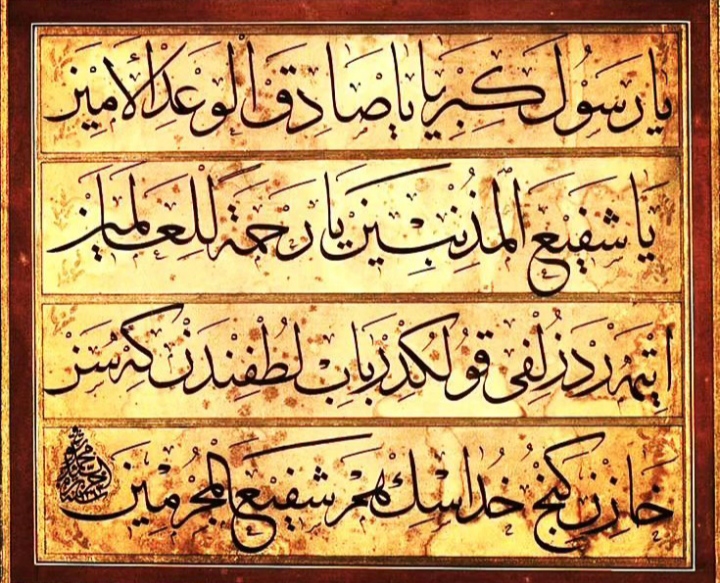 يا رسول كبريا يا صادق الوعد الأمين
يا شفيع المذنبين يا رحمة للعالمين
ايتمه رد زلفى قولكدر باب لطفندن كه سز
خازن كنج خداسك هم شفيع المجرمين